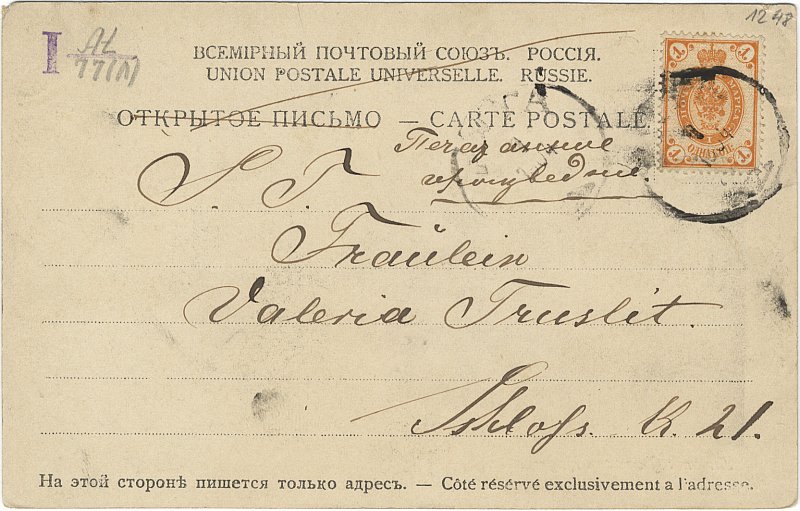 1248
I
AL
77(N)
ВСЕМІРНЫЙ ПОЧТОВЫЙ СОЮЗЪ. РОССІЯ.
UNION POSTALE UNIVERSELLE. RUSSIE.
ОТКРЫТОЕ ПИСЬМО — CARTE POSTALE
1 1
МАРКА
ОДНА КОП.
1 1
Печатанное
произведние
S. T.
Fräulein
Valeria Truslit.
Schloss. K. 21.
На этой сторонѣ пишется только адресъ. — Côté résérvé exclusivement a l'adresse.